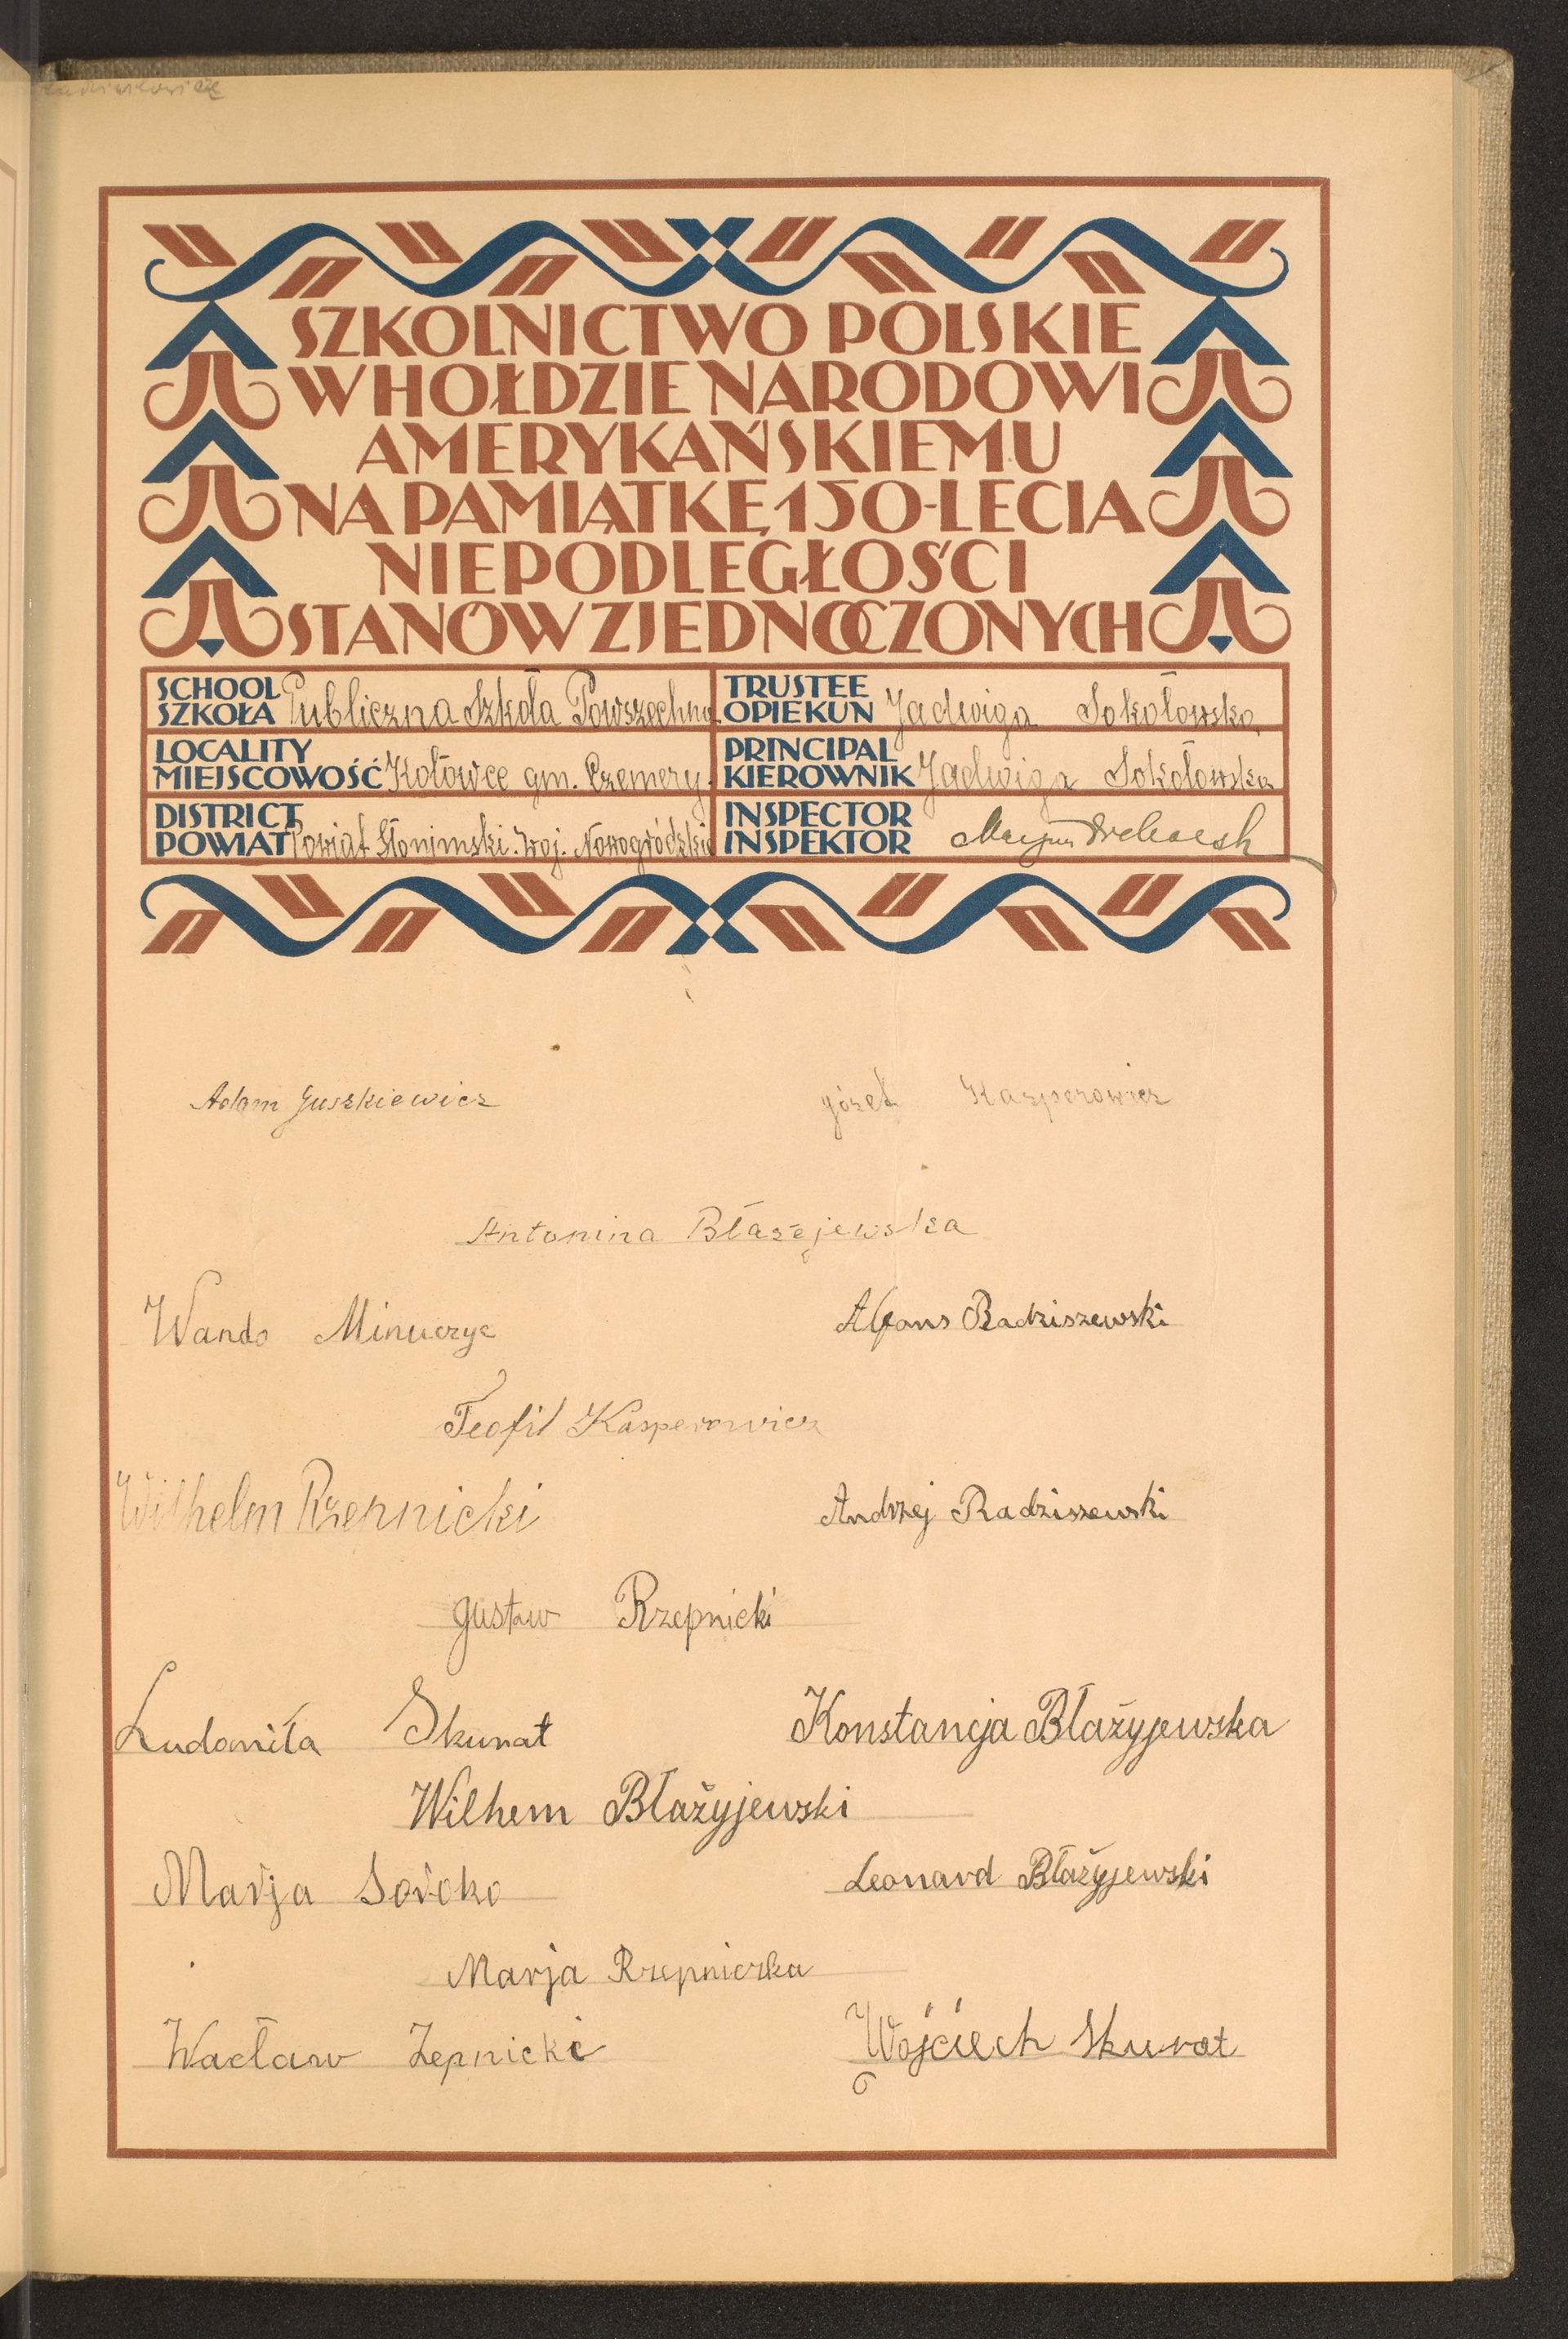 SZKOLNICTWO POLSKIE
W HOŁDZIE NARODOWI
AMERYKAŃSKIEMU
NA PAMIĄTKĘ 150-LECIA
NIEPODLEGŁOŚCI
STANÓW ZJEDNOCZONYCH
SCHOOL
SZKOŁA Publiczna Szkoła Powszechna
TRUSTEE
OPIEKUN Jadwiga Sokołowska
LOCALITY
MIEJSCOWOŚĆ Kołowce gm. Czemery.
PRINCIPAL
KIEROWNIK Jadwiga Sokołowska
DISTRICT
POWIAT Powiat Słonimski. Woj. Nowogródzkie
INSPECTOR
INSPEKTOR
Adam Juszkiewicz
Józef Kasperowicz
Antonina Błażejewska
Wanda Minuczyc
Alfons Radziszewski
Teofil Kasperowicz
Wilhelm Rzepnicki
Andrzej Radziszewski
Gustaw Rzepnicki
Ludomiła Skurat
Konstancja Błażyjewska
Wilhem Błażyjewski
Marja Soroko
Leonard Błażyjewski
Marja Rzepniczka
Wacław Żepnicki
Wojciech Skurat